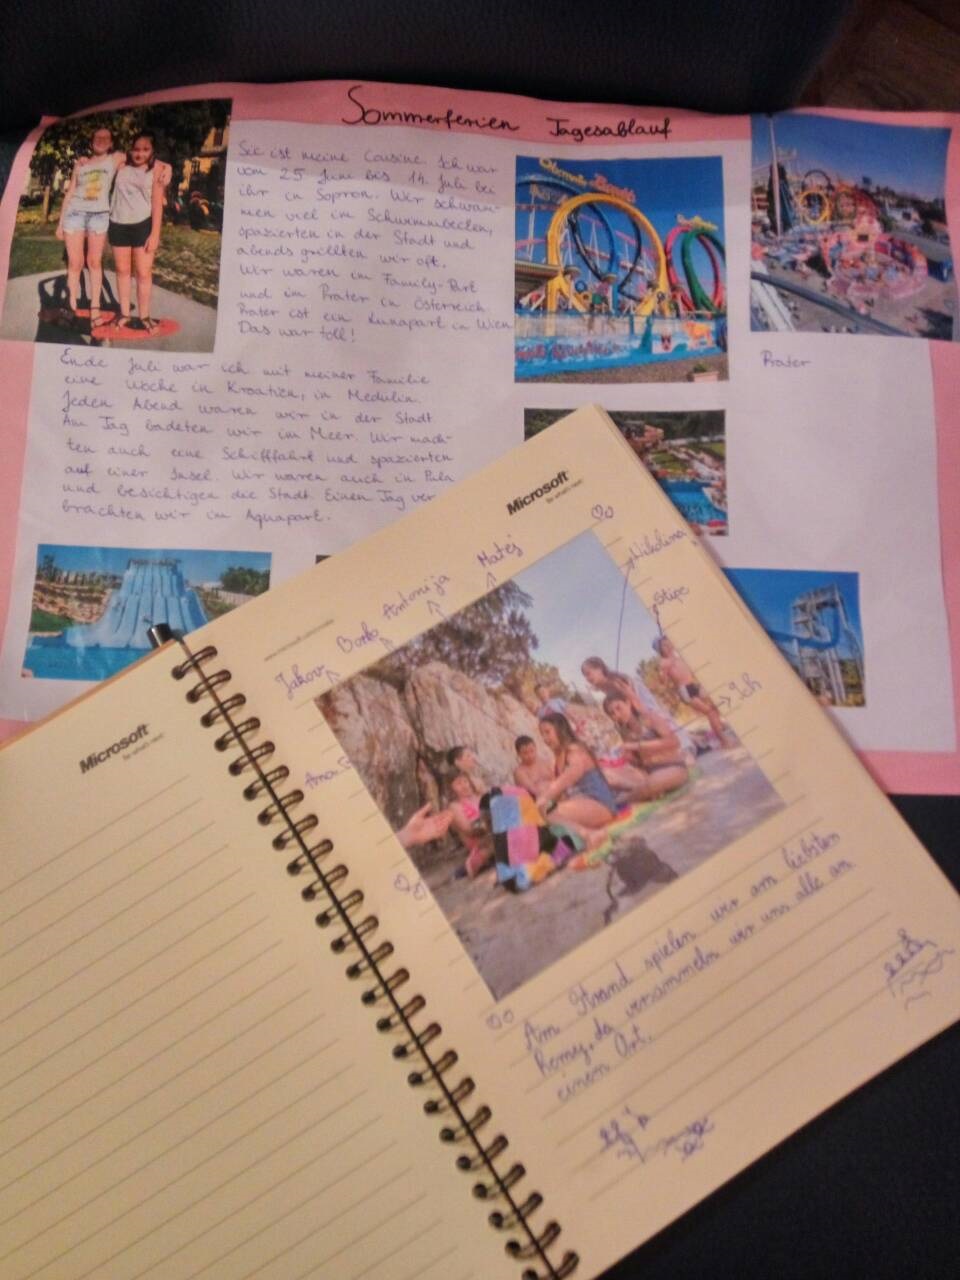 Sommerferien Tagesablauf
Sie ist meine Cousine. Ich war
vom 25 Juni bis 14. Juli bei
ihr in Sopron. Wir schwam-
men viel im Schwimmbecken,
spazierten in der Stadt und
abends grillten wir oft.
Wir waren im Family-Park
und im Prater in Österreich
Prater ist ein Lunapark in Wien
Das war toll!
Prater
Ende Juli war ich mit meiner Familie
eine Woche in Kroatien, in Medulin.
Jeden Abend waren wir in der Stadt
Am Tag badeten wir im Meer. Wir mach-
ten auch eine Schifffahrt und spazierten
auf einer Insel. Wir waren auch in Pula
und besichtigen die Stadt. Einen Tag ver
brachten wir im Aquapark.
Microsoft
Microsoft
Jakov
Borko
Antonija
Matej
Nikolina
Stipe
Ich
Ana
Am Strand spielen wir am liebsten
Remey, da versammeln wir uns alle an
einem Ort.